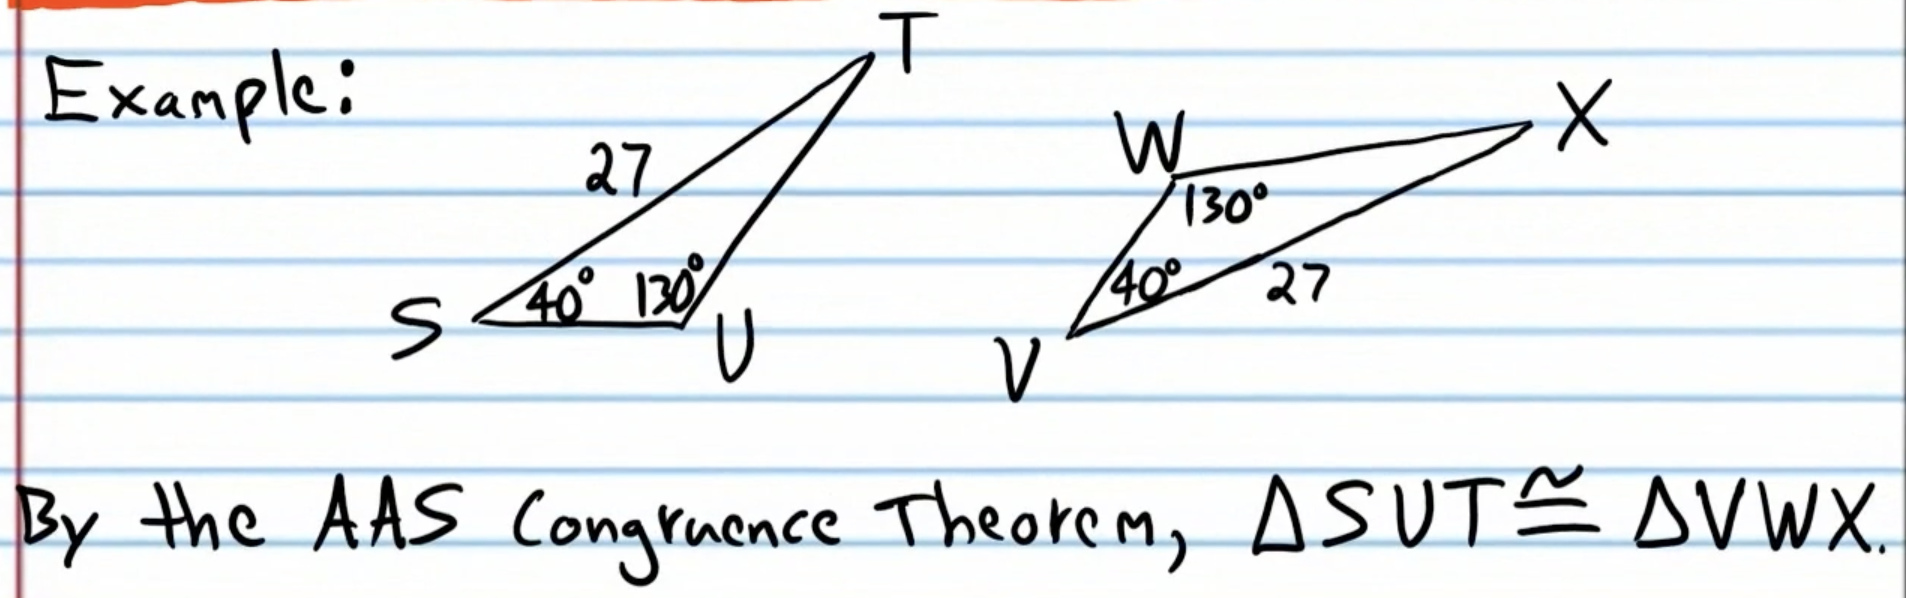 Example:
T
27
40° 130°
S
U
W
X
130°
40°
27
V
By the AAS Congruence Theorem, ΔSUT≅ΔVWX.